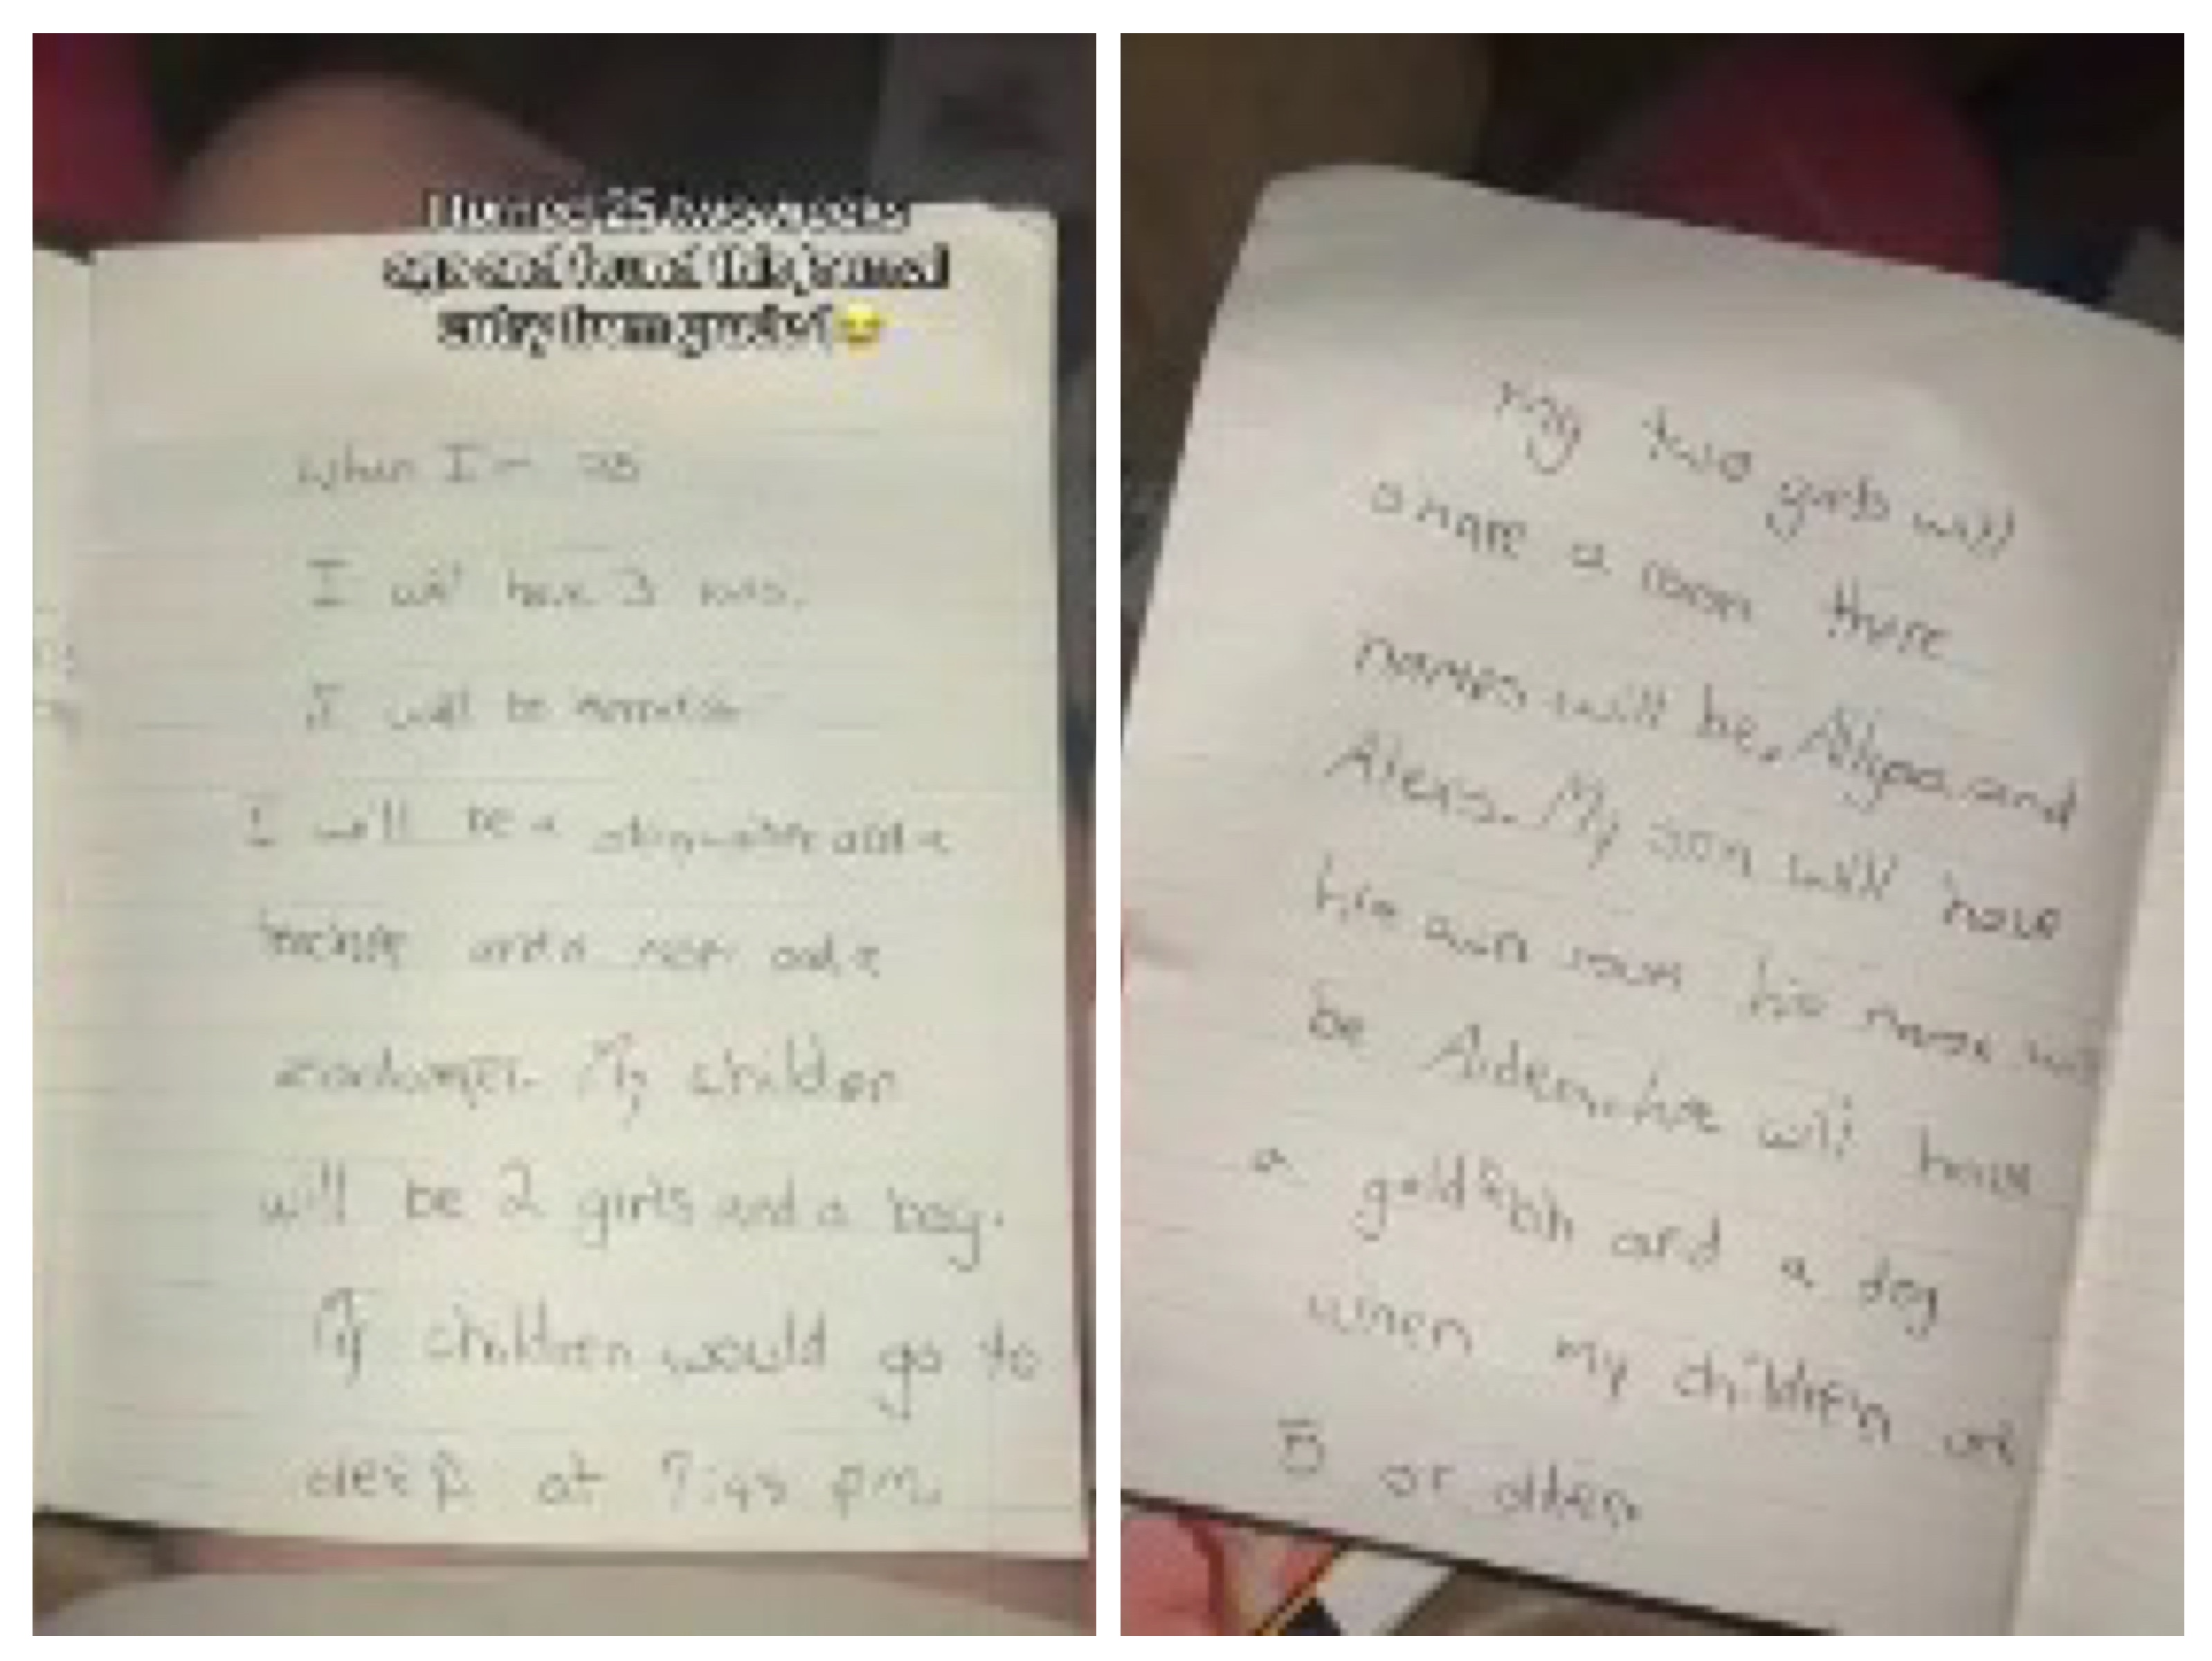 I turned 25 two weeks
ago and found this journal
entry from grade 1
When I'm 25
I will have 3 kids.
I will be
I will be a and a
teacher and a mom and a
My children
will be 2 girls and a boy.
My children would go to
sleep at 7:45 pm.
My two girls will
share a room there
names will be, Allysa and
Alexis. My son will have
his own room his name will
be Aiden. he will have
a goldfish and a dog
when my children are
5 or older.